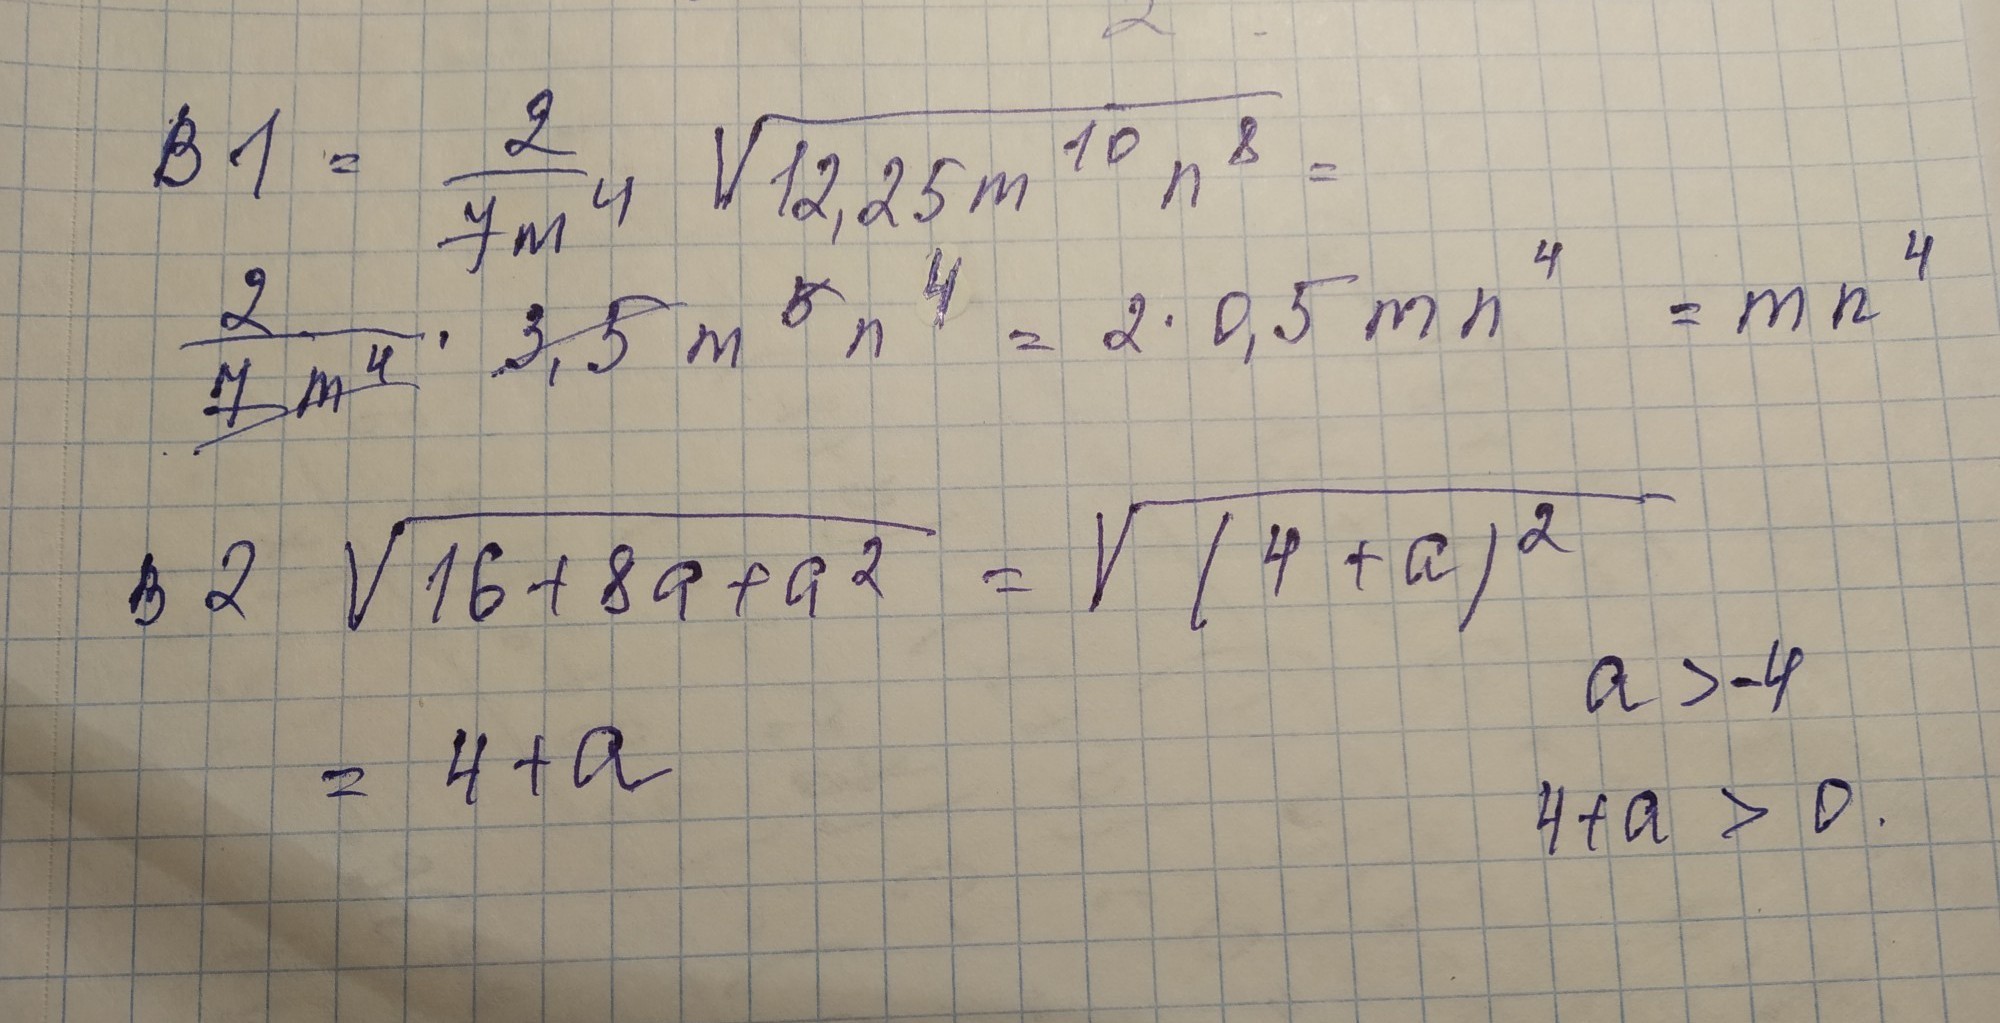 B 1 = 2/7m⁴ √12,25m¹⁰n⁸ =
2/7m⁴ · 3,5m⁵n⁴ = 2·0,5mn⁴ = mn⁴
B 2 √16+8a+a² = √(4+a)²
a > -4
= 4+a
4+a > 0.